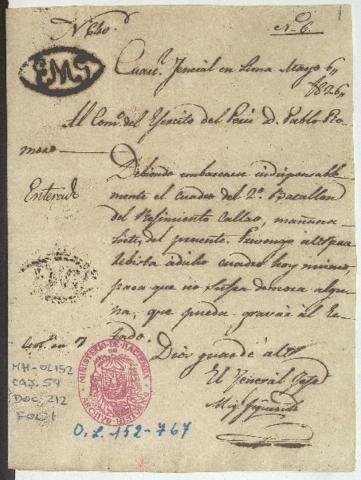 N.º 6.
EMG
Cuart.l Jeneral en Lima Mayo 6,,
1826,,
Al Com.o del Ejercito del Perú D. Pablo Ro
mero
Debiendo embarcarse indispensable
Enterado
mente el cuadro del 2.º Batallon
del Rejimiento Callao, mañana
siete, del presente. Prevengo á V. pa
revista á dicho cuadro hoy mismo,
para que no sufra demora algu
na, que pueda gravar al Es
tado.
Dios guarde á V.
El Jeneral Jefe
MINISTERIO DE HACIENDA
ARCHIVO HISTORICO
MH-OL152
CAJ. 59
DOC. 212
FOL. 1
O.L. 152-767